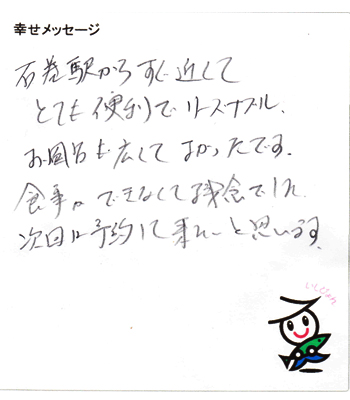 幸せメッセージ
石巻駅からすぐ近くて
とても便利でリーズナブル、
お風呂も広くてよかったです。
食事ができなくて残念でした。
次回は予約して来たいと思います。